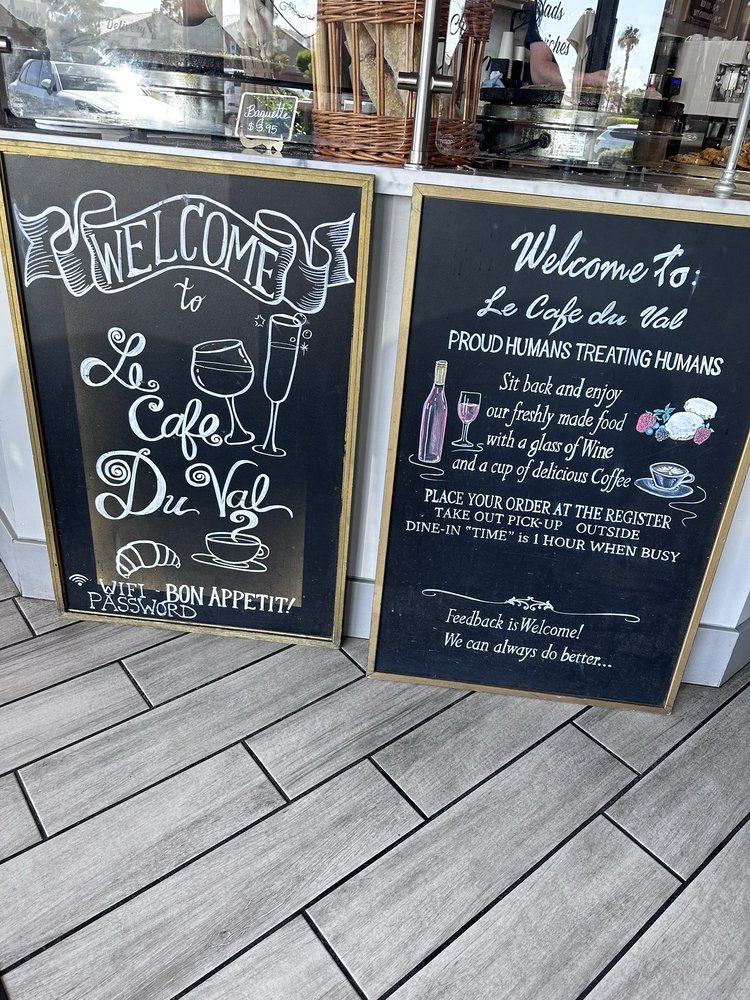 Delivery
Baguette
$3.95
WELCOME
to
Le
Cafe
Du Val
WIFI - BON APPETIT!
PASSWORD
Welcome to:
Le Cafe du Val
PROUD HUMANS TREATING HUMANS
Sit back and enjoy
our freshly made food
with a glass of Wine
and a cup of delicious Coffee
PLACE YOUR ORDER AT THE REGISTER
TAKE OUT PICK-UP OUTSIDE
DINE-IN "TIME" is 1 HOUR WHEN BUSY
Feedback is Welcome!
We can always do better...